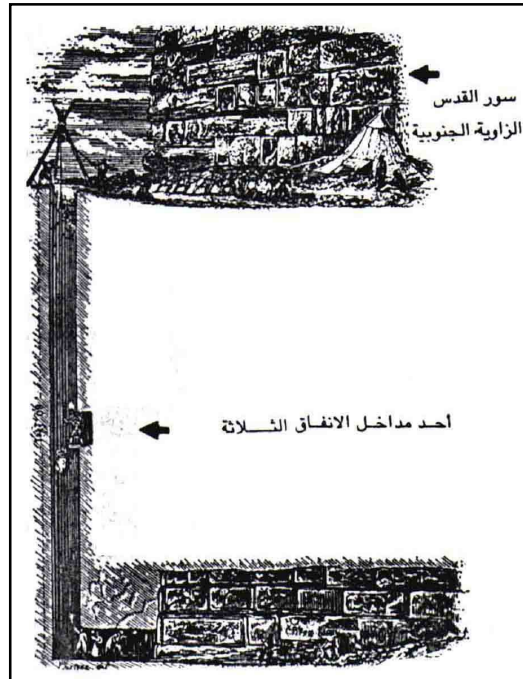 سور القدس
الزاوية الجنوبية
أحد مداخل الانفاق الثلاثة